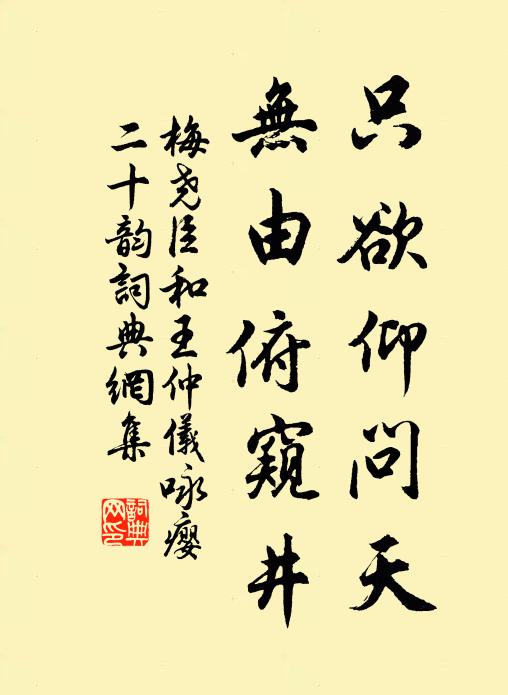 只欲仰问天
無由俯窺井
梅尧臣和王仲儀咏瘿
二十韵詞典網集
詞典
网印